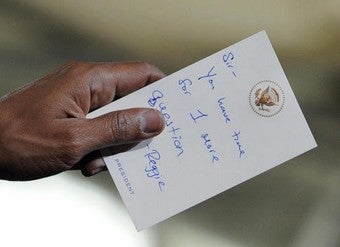 Sir-
You have time
for 1 more
question
Reggie
PRESIDENT